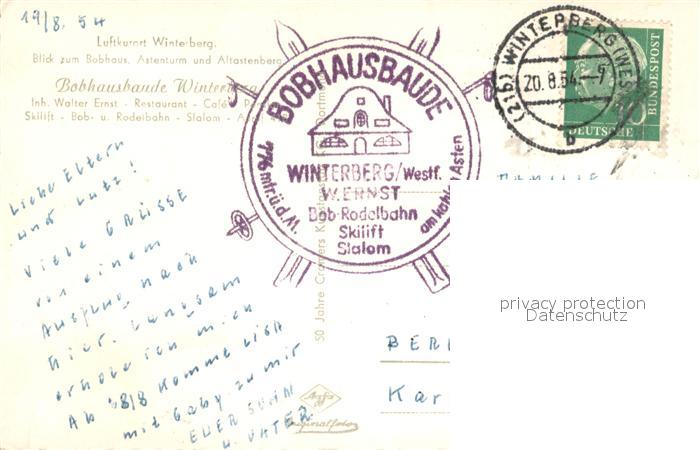 19/8. 54
Luftkurort Winterberg.
Blick zum Bobhaus, Astenturm und Altastenberg
Bobhausbaude Winterberg
Inh. Walter Ernst - Restaurant - Café
Skilift - Bob- u. Rodelbahn - Slalom
BOBHAUSBAUDE
776 mtr. ü. d. M.
WINTERBERG/Westf.
W. ERNST
Bob-Rodelbahn
Skilift
Slalom
am kahlen Asten
(21b) WINTERBERG (WES
20.8.54.-9
b
DEUTSCHE BUNDESPOST
Liebe Eltern
und Lutz!
Viele GRÜSSE
von einem
Ausflug nach
hier. Langsam
erhole ich mich
Ab 28/8 komme
mit Gaby zu mir
EUER SOHN
u. VATER.
50 Jahre Cramers
Dortmund
FAMILIE
BERL
Kar
Agfa
Originalfoto
privacy protection
Datenschutz